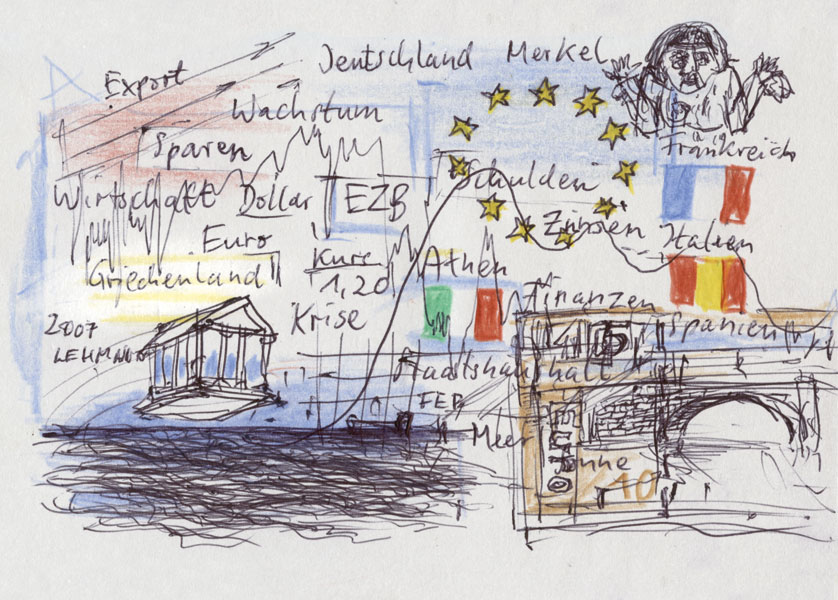 Deutschland Merkel
Export
Wachstum
Sparen
Frankreich
Wirtschaft Dollar EZB
Schulden
Euro
Zinsen
Italien
Griechenland
Kurs
1,20
Athen
Krise
Finanzen
2007
LEHMAN
Spanien
Staatshaushalt
FED
Meer
Sonne
10